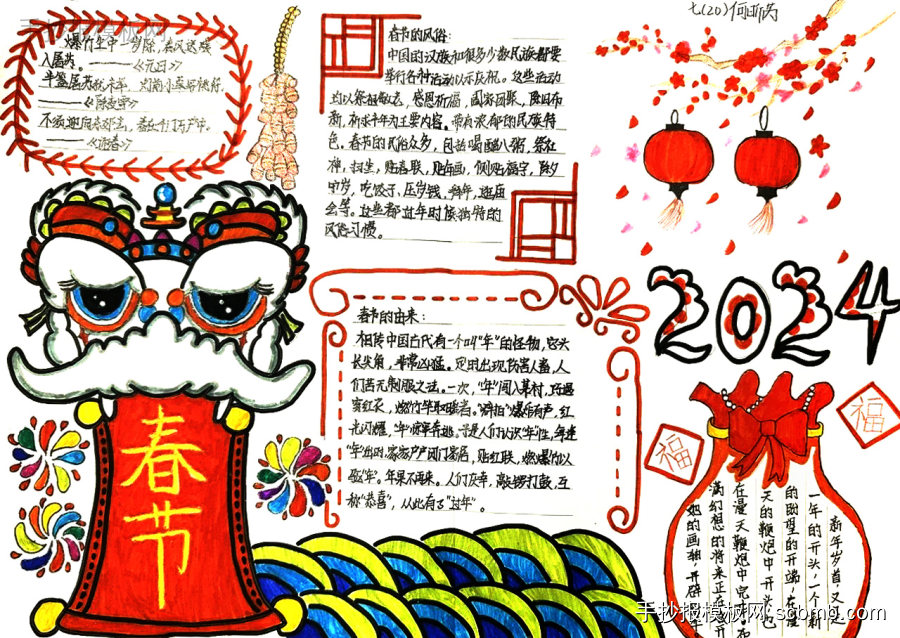 七(20)
爆竹声中一岁除,春风送暖
入屠苏。——《元日》
半盏屠苏犹未举,灯前小草写桃符.
——《除夜雪》
不须迎向东郊去,春在千门万户中.
——《迎春》
春节的风俗:
中国的汉族和很多少数民族都要
举行各种活动以示庆祝。这些活动
均以祭祖敬老,感恩祈福,阖家团聚,除旧布
新,祈求丰年为主要内容。带有浓郁的民族特
色。春节的民俗众多,包括喝腊八粥,祭灶
神,扫尘,贴春联,贴年画,倒贴福字,除夕
守岁,吃饺子,压岁钱,拜年,逛庙
会等。这些都过年时候独特的
风俗习惯。
2024
春节
春节的由来:
相传中国古代有一个叫"年"的怪物,它头
长尖角,非常凶猛。定时出现伤害人畜,人
们苦无制服之法。一次,"年"闯入某村,巧遇
穿红衣,燃竹竿取暖者。"噼拍"爆炸有声,红
光闪耀,"年"掉窜奔逃。于是人们认识"年"性,每逢
"年"出时,家家户户闭门窗,贴红联,燃爆竹以
驱"年"。年果不再来。人们庆幸,敲锣打鼓,互
称"恭喜",从此有了"过年"。
福
福
新年岁首,又
一年的开头,一个新
的盼望的开端,在漫
天的鞭炮中开
在漫天鞭炮中
满幻想的将来正在
她的画轴,开辟
手抄报模板网 scbmb.com
手抄报模板网